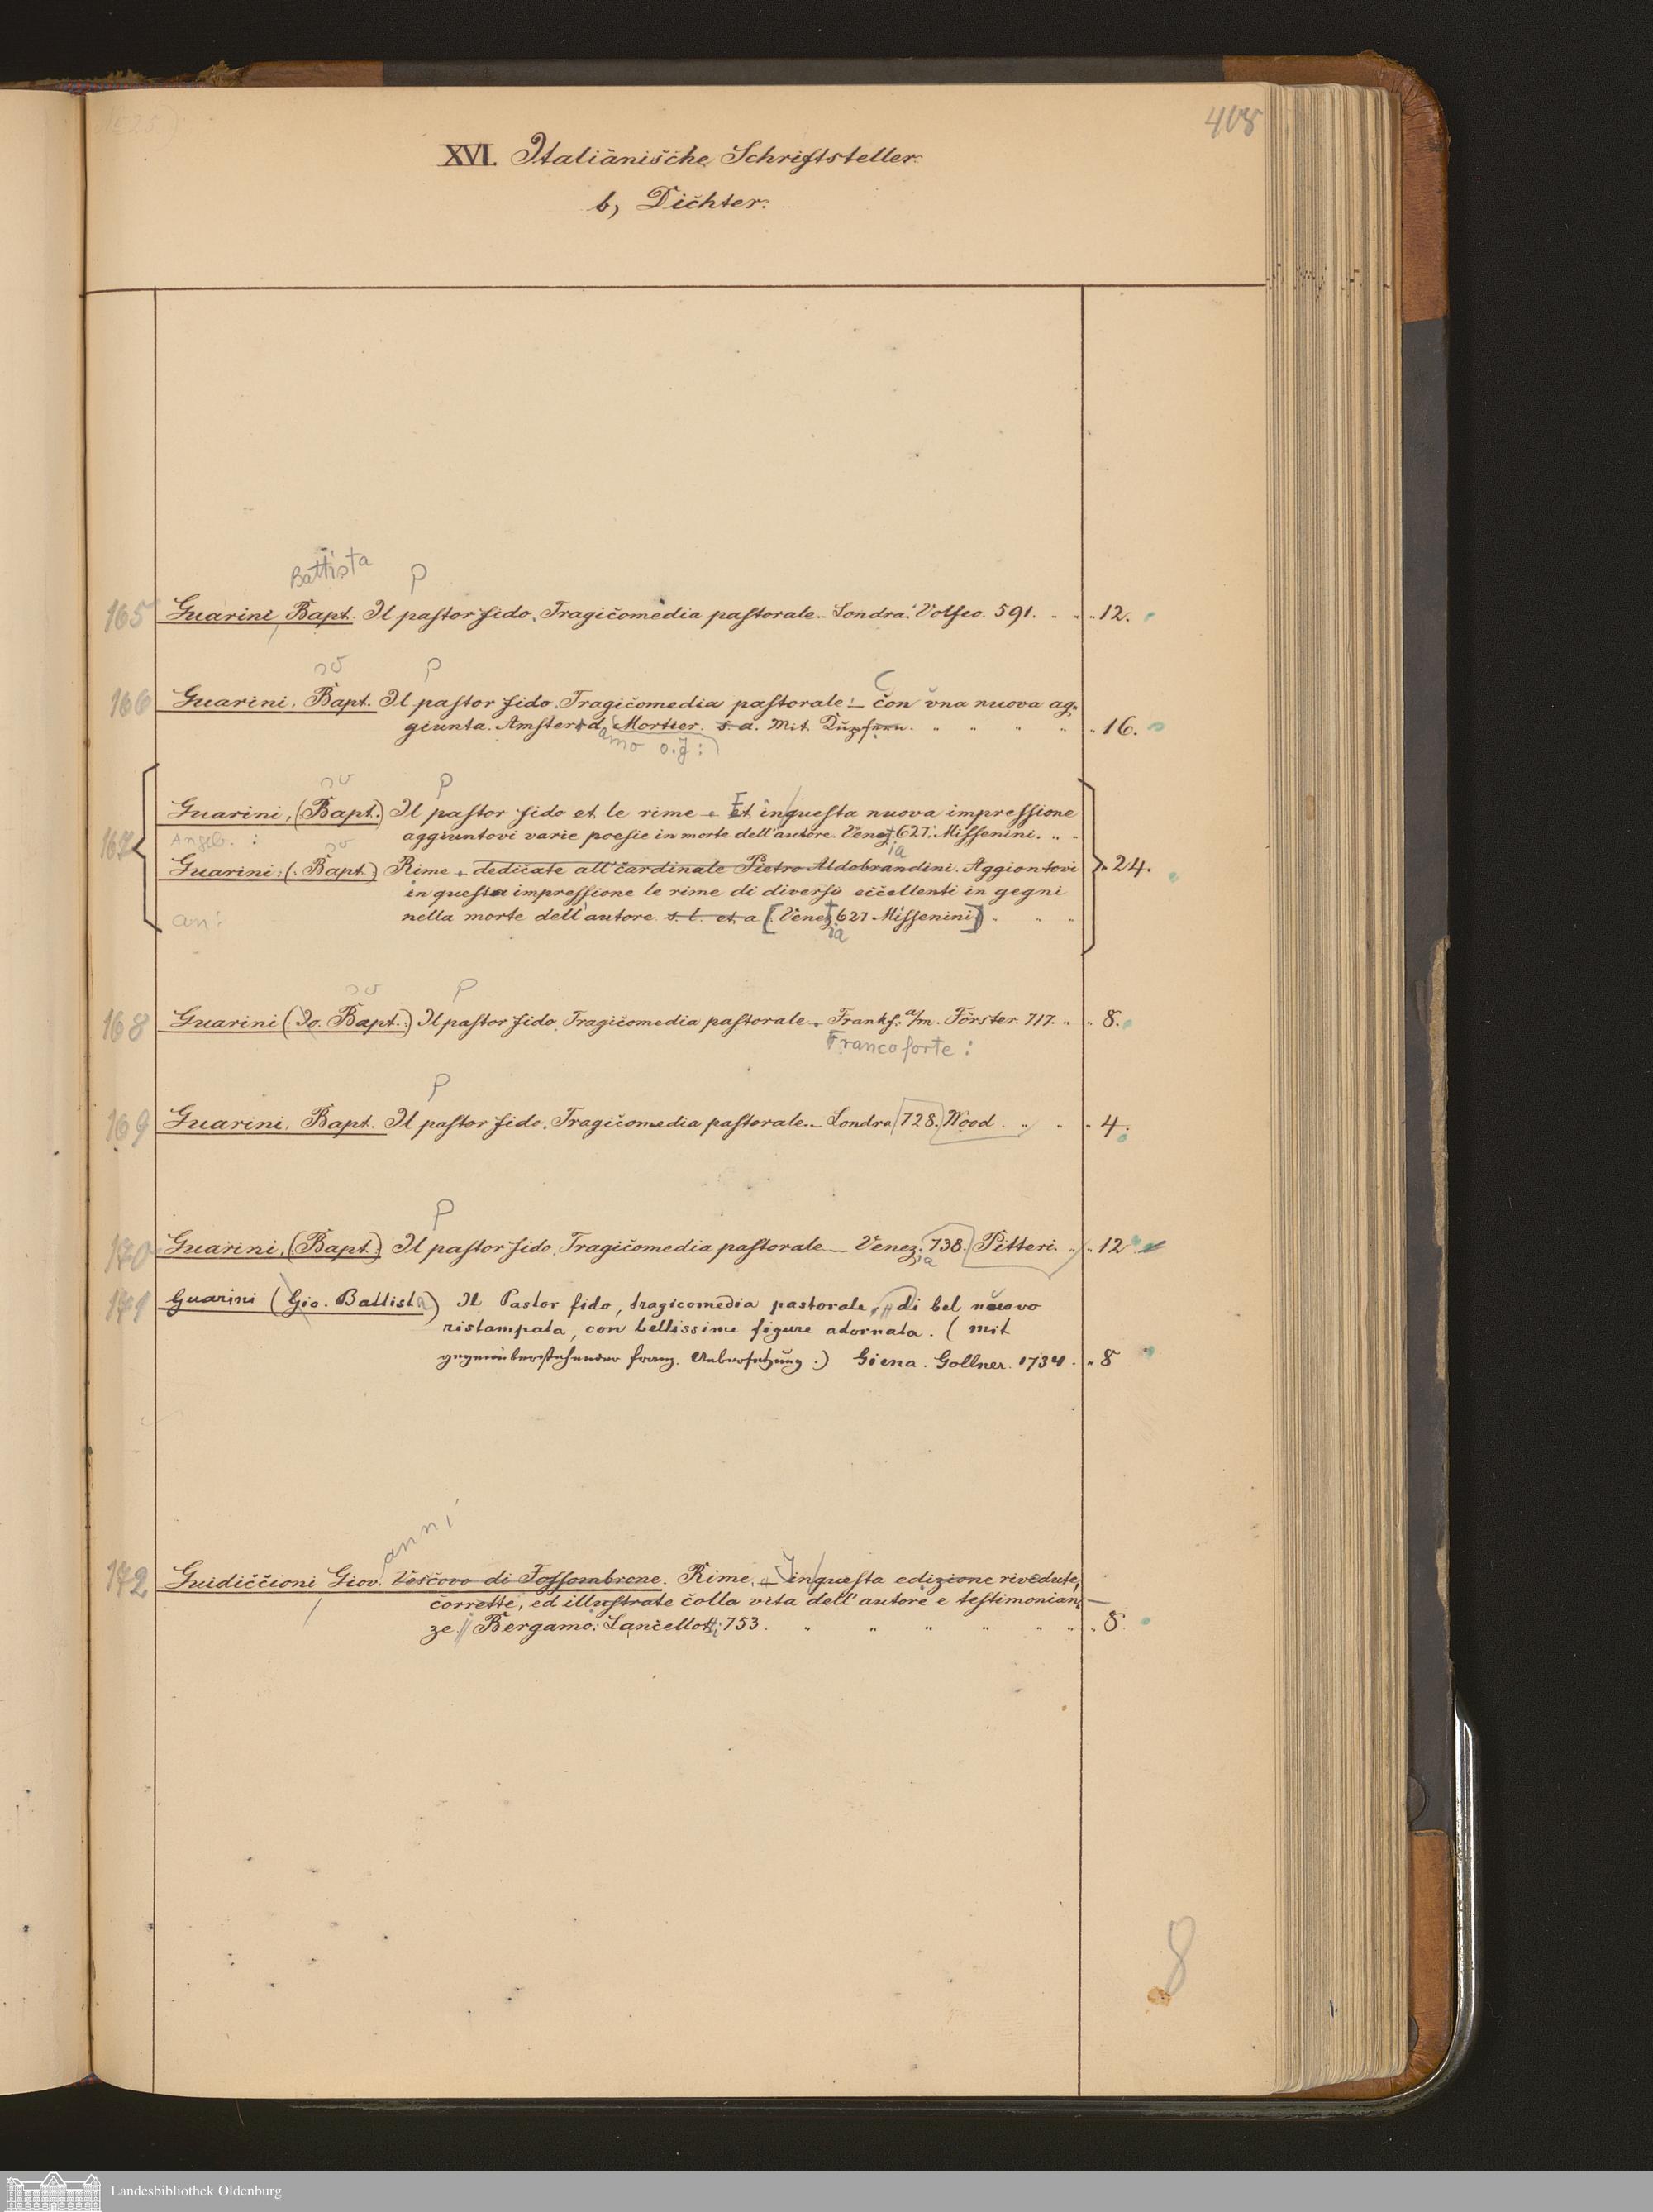 408
XVI. Italiänische Schriftsteller.
b, Dichter.
Battista p
165 Guarini, Bapt. Il pastor fido. Tragicomedia pastorale. Londra. Volfeo. 591. " " " 12.
p C
166 Guarini, Bapt. Il pastor fido. Tragicomedia pastorale: — con una nuova ag-
giunta. Amsterd. Mortier. s. a. Mit Kupfern. " " " " " 16.
amo o.J:
p
167 Guarini, (Bapt.) Il pastor fido et le rime. Et in questa nuova impressione
aggiuntovi varie poesie in morte dell'autore. Venez. 627. Missenini. " "
Angeb. : ia
Guarini, (Bapt.) Rime. dedicate all'cardinale Pietro Aldobrandini. Aggiontovi " 24.
in questa impressione le rime di diversi eccellenti in gegni
nella morte dell'autore. s. l. et a [Venez. 627 Missenini] " " "
an: ia
p
168 Guarini (Jo. Bapt.) Il pastor fido. Tragicomedia pastorale. Frankf. a/m. Förster. 717. " " 8.
Francoforte :
p
169 Guarini, Bapt. Il pastor fido. Tragicomedia pastorale. — Londra 728. Wood. " " " 4.
p
170 Guarini, (Bapt.) Il pastor fido. Tragicomedia pastorale. — Venez. 738. Pitteri. " " 12
ia
171 Guarini (Gio. Battista) Il Pastor fido, tragicomedia pastorale, di bel nuovo
ristampata, con bellissime figure adornata. (mit
gegenüberstehender franz. Uebersetzung.) Giena. Gollner. 1734. " 8
anni
172 Guidiccioni Giov. Vescovo di Fossombrone. Rime. In questa edizione rivedute,
corrette, ed illustrate colla vita dell'autore e testimonian-
ze. Bergamo. Lancellotti. 753. " " " " " " " 8.
8
Landesbibliothek Oldenburg